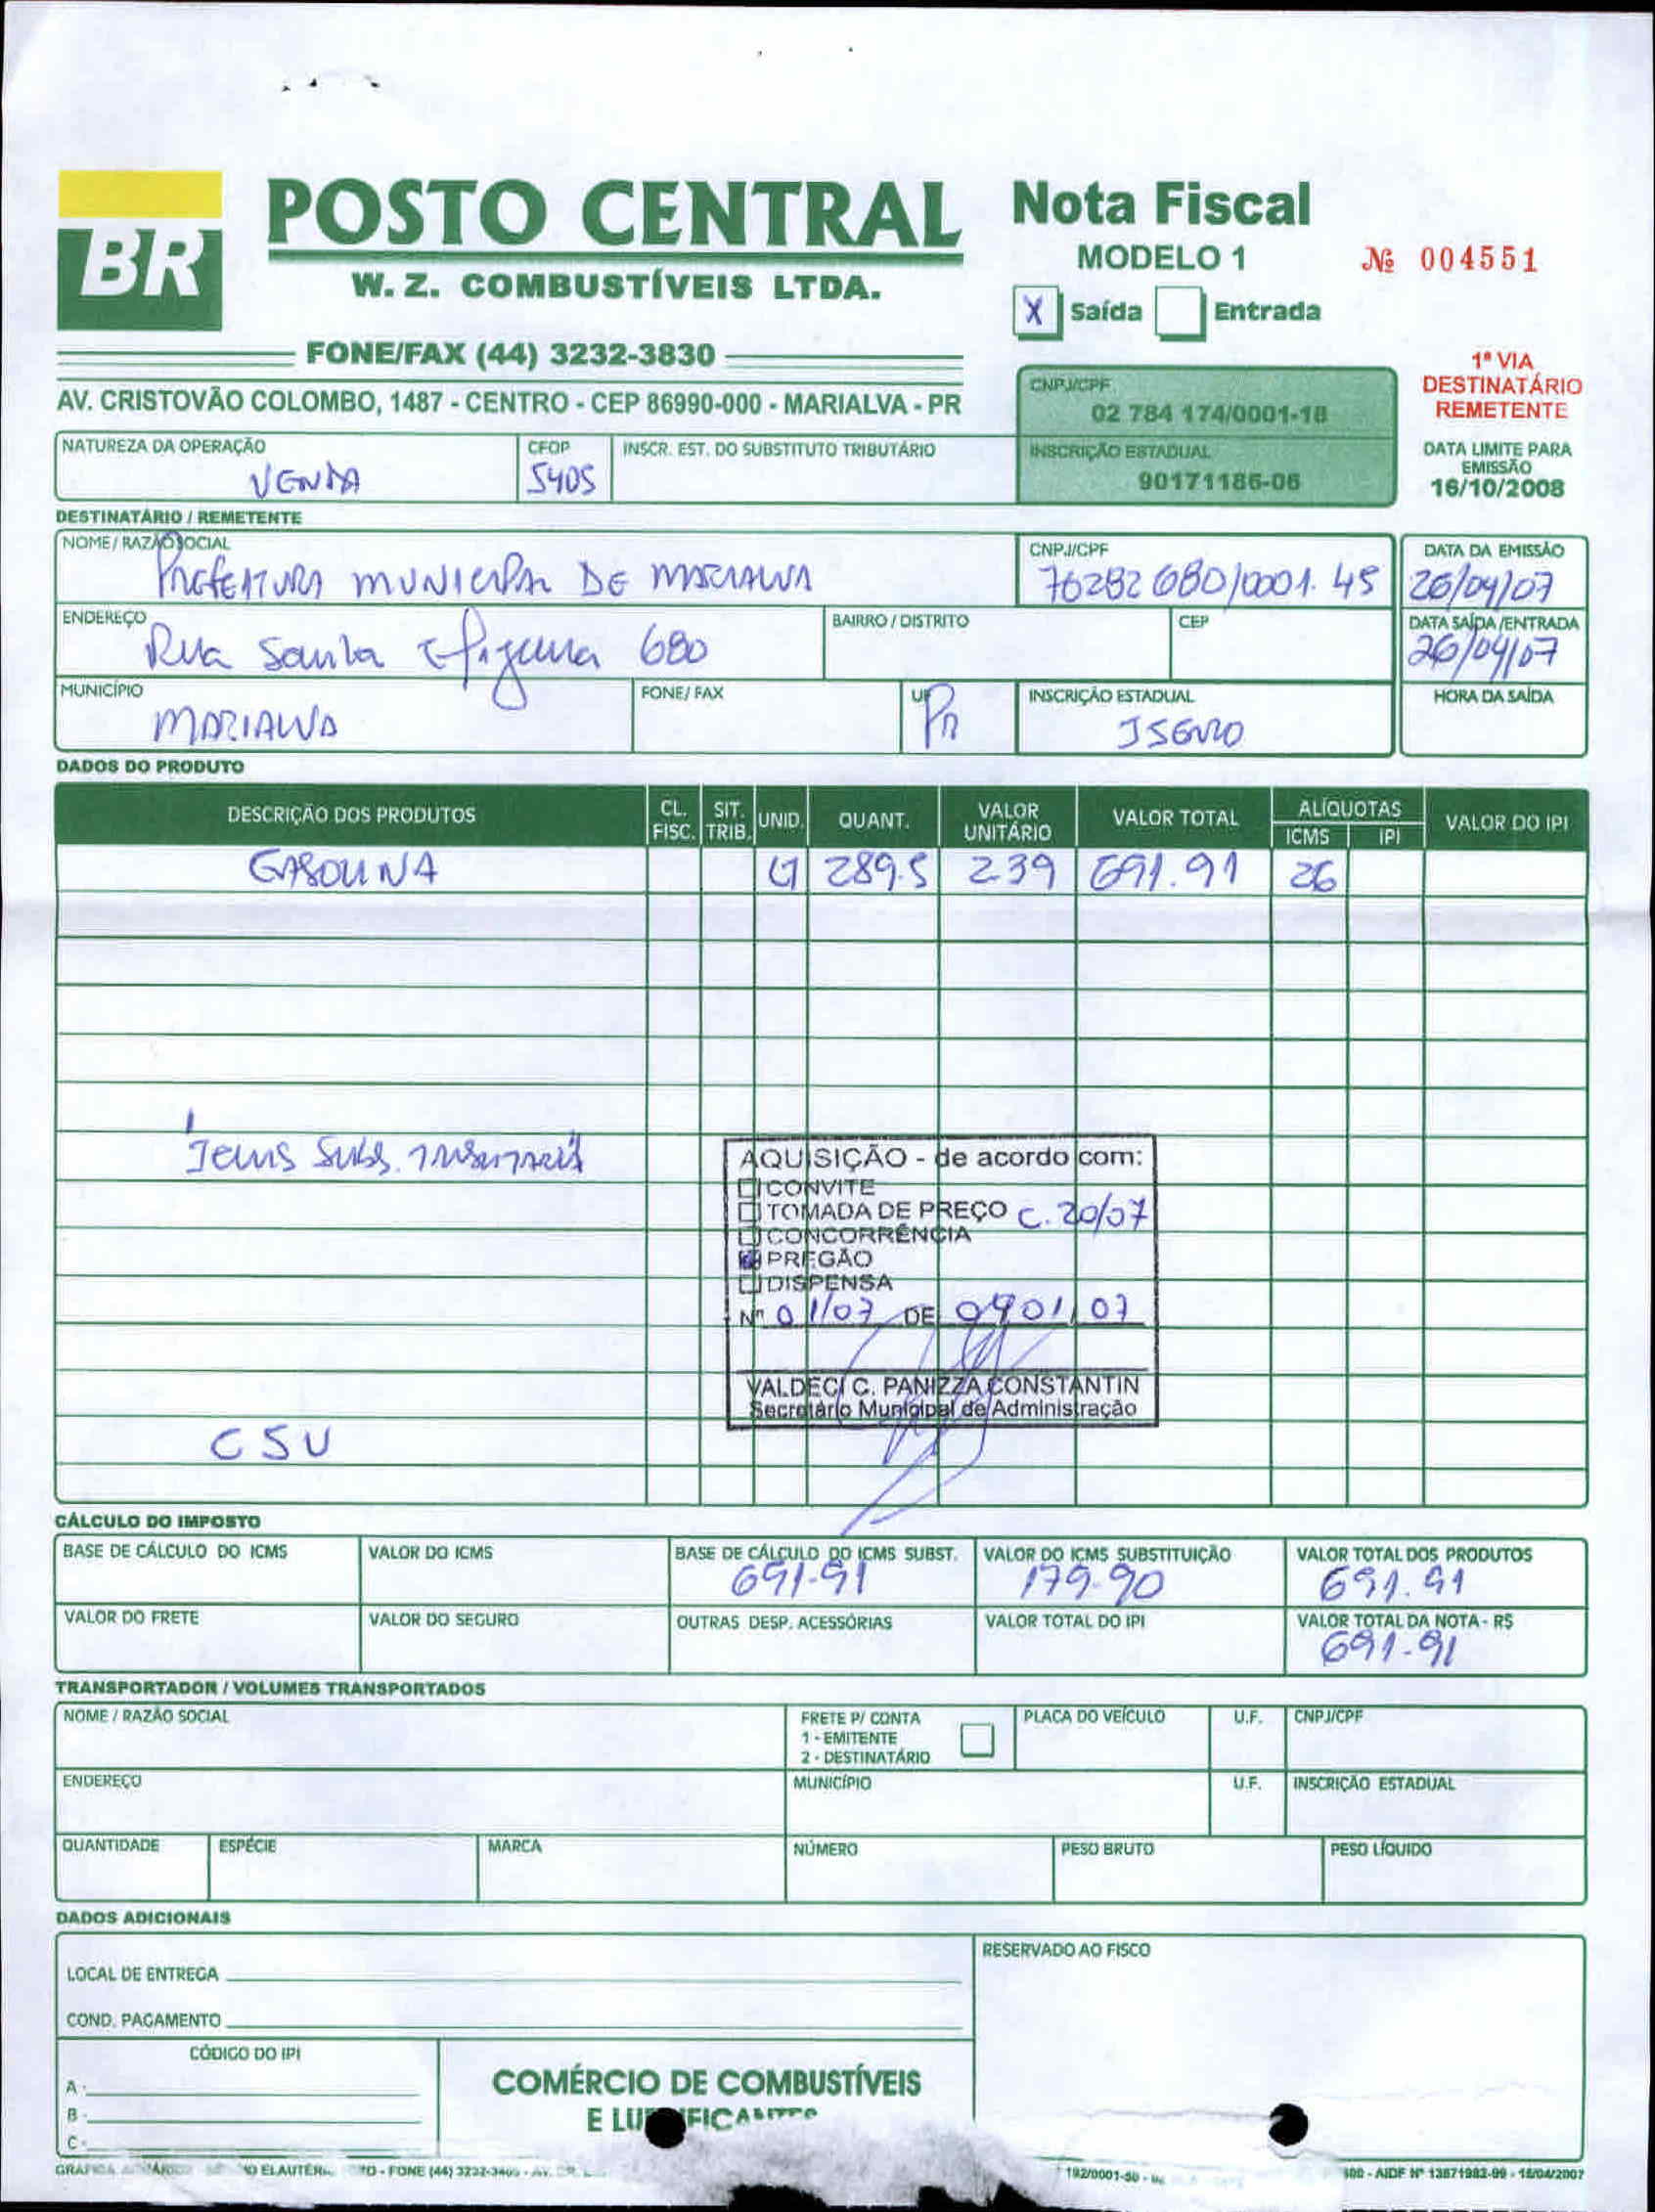 BR
POSTO CENTRAL
W. Z. COMBUSTÍVEIS LTDA.
FONE/FAX (44) 3232-3830
AV. CRISTOVÃO COLOMBO, 1487 - CENTRO - CEP 86990-000 - MARIALVA - PR
Nota Fiscal
MODELO 1
Nº 004551
X Saída Entrada
1ª VIA
DESTINATÁRIO
REMETENTE
CNPJ/CPF
02 784 174/0001-18
INSCRIÇÃO ESTADUAL
90171186-06
DATA LIMITE PARA
EMISSÃO
16/10/2008
NATUREZA DA OPERAÇÃO CFOP INSCR. EST. DO SUBSTITUTO TRIBUTÁRIO
VENDA 5405
DESTINATÁRIO / REMETENTE
NOME / RAZÃO SOCIAL CNPJ/CPF DATA DA EMISSÃO
PREFEITURA MUNICIPAL DE MARIALVA 76282680/0001.45 26/04/07
ENDEREÇO BAIRRO / DISTRITO CEP DATA SAÍDA/ENTRADA
Rua Santa Efigenia 680 26/04/07
MUNICÍPIO FONE/ FAX UF INSCRIÇÃO ESTADUAL HORA DA SAÍDA
MARIALVA PR ISENTO
DADOS DO PRODUTO
DESCRIÇÃO DOS PRODUTOS CL. FISC. SIT. TRIB. UNID. QUANT. VALOR UNITÁRIO VALOR TOTAL ALÍQUOTAS ICMS IPI VALOR DO IPI
GASOLINA LT 289.5 239 691.91 26
Icms Subs. Tributaria
AQUISIÇÃO - de acordo com:
CONVITE
TOMADA DE PREÇO C. 20/07
CONCORRÊNCIA
PREGÃO
DISPENSA
Nº 01/07 DE 09 01 07
VALDECI C. PANIZZA CONSTANTIN
Secretário Municipal de Administração
CSU
CÁLCULO DO IMPOSTO
BASE DE CÁLCULO DO ICMS VALOR DO ICMS BASE DE CÁLCULO DO ICMS SUBST. VALOR DO ICMS SUBSTITUIÇÃO VALOR TOTAL DOS PRODUTOS
691.91 179.90 691.91
VALOR DO FRETE VALOR DO SEGURO OUTRAS DESP. ACESSÓRIAS VALOR TOTAL DO IPI VALOR TOTAL DA NOTA - R$
691.91
TRANSPORTADOR / VOLUMES TRANSPORTADOS
NOME / RAZÃO SOCIAL FRETE P/ CONTA PLACA DO VEÍCULO U.F. CNPJ/CPF
1 - EMITENTE
2 - DESTINATÁRIO
ENDEREÇO MUNICÍPIO U.F. INSCRIÇÃO ESTADUAL
QUANTIDADE ESPÉCIE MARCA NÚMERO PESO BRUTO PESO LÍQUIDO
DADOS ADICIONAIS
RESERVADO AO FISCO
LOCAL DE ENTREGA
COND. PAGAMENTO
CÓDIGO DO IPI
A -
B -
C -
COMÉRCIO DE COMBUSTÍVEIS
E
GRAFICA - FONE (44) - AIDF Nº 13871982-99 - 18/04/2007